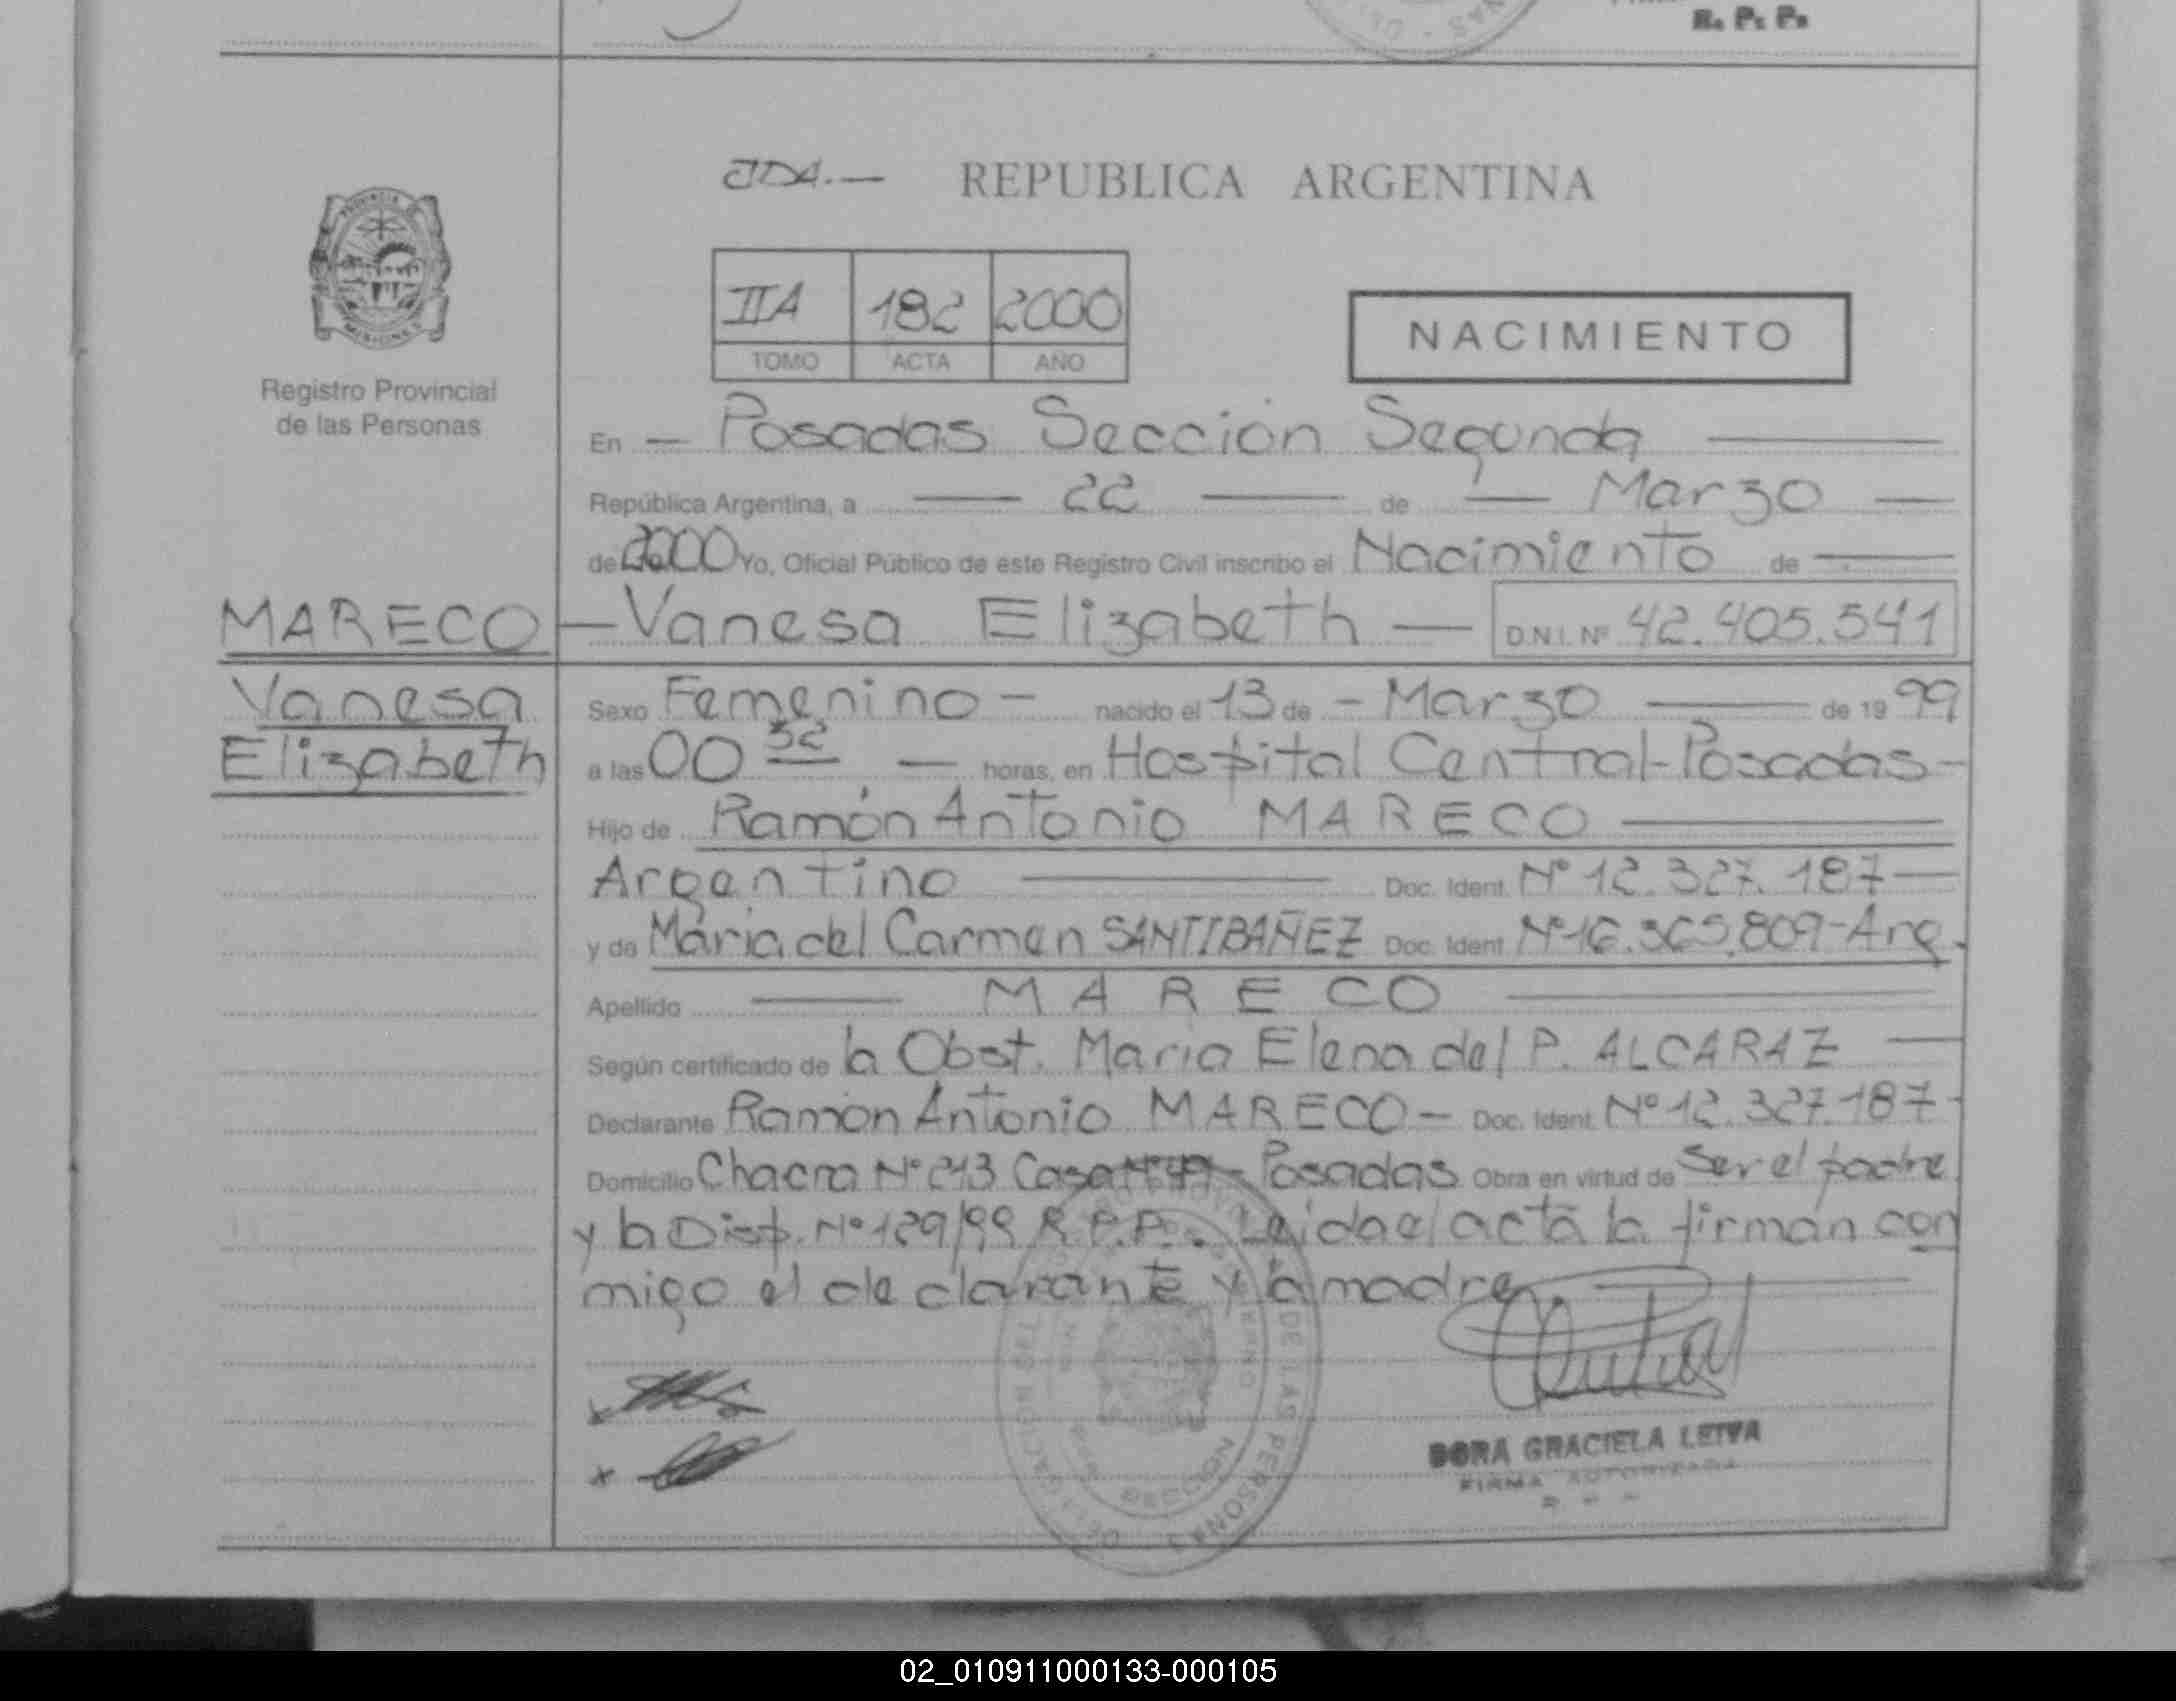 R. P. P.
JDA.— REPUBLICA ARGENTINA
PROVINCIA DE
MISIONES
Registro Provincial
de las Personas
IIA 182 2000
TOMO ACTA AÑO
NACIMIENTO
En — Posadas Sección Segunda —
República Argentina, a — 22 — de — Marzo —
de 2000 Yo, Oficial Público de este Registro Civil inscribo el Nacimiento de —
MARECO — Vanesa Elizabeth — D.N.I. Nº 42.405.541
Vanesa
Elizabeth
Sexo Femenino — nacido el 13 de — Marzo — de 19 99
a las 00 32 — horas, en Hospital Central - Posadas —
Hijo de Ramón Antonio MARECO —
Argentino — Doc. Ident. Nº 12.327.187 —
y de María del Carmen SANTIBAÑEZ Doc. Ident. Nº 16.365.809 - Arg.
Apellido — MARECO —
Según certificado de la Obst. Maria Elena del P. ALCARAZ —
Declarante Ramón Antonio MARECO — Doc. Ident. Nº 12.327.187 -
Domicilio Chacra Nº 213 Casa Nº 49 - Posadas Obra en virtud de Ser el padre
y la Disp. Nº 129/99 R.P.P.. Leida el acta la firman con
migo el declarante y la madre. —
DE LAS PERSONAS
DORA GRACIELA LEIVA
FIRMA AUTORIZADA
02_010911000133-000105